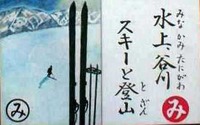 水上、谷川
みなかみたにがわ
スキーと登山
とざん
み
み